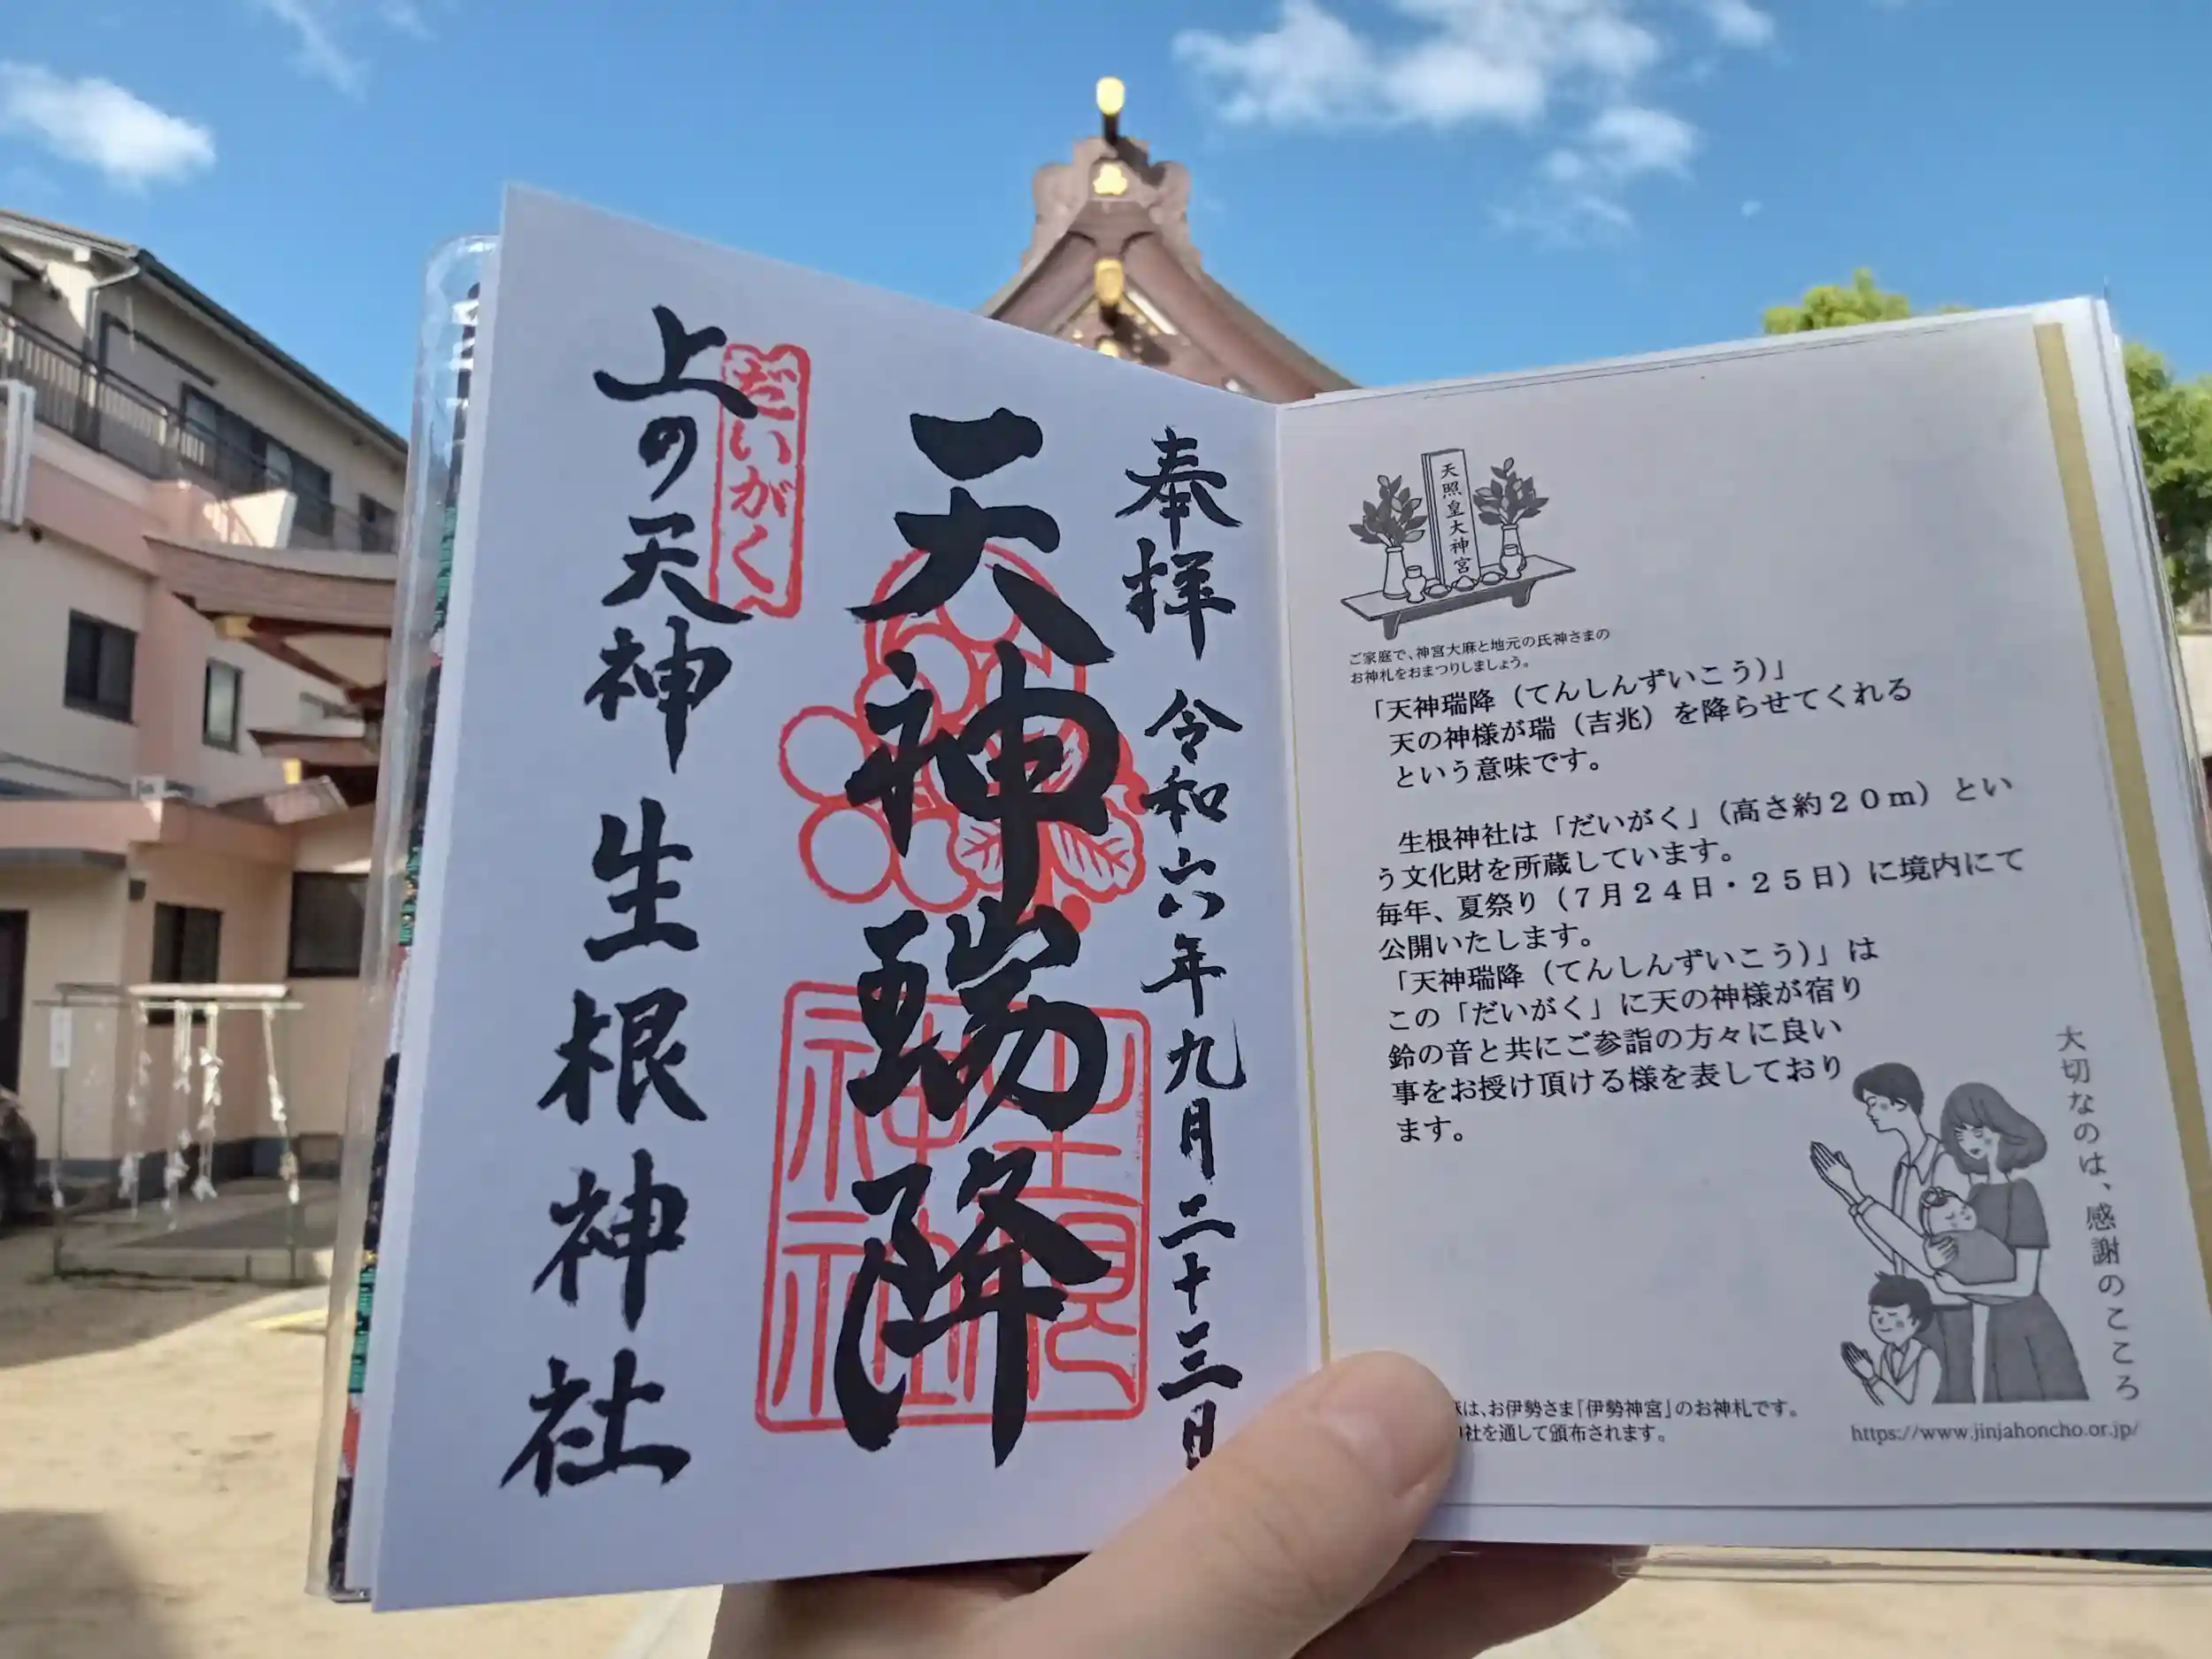 奉拝 令和六年九月二十三日
天神瑞降
だいがく
上の天神 生根神社
生根
神社
天照皇大神宮
ご家庭で、神宮大麻と地元の氏神さまの
お神札をおまつりしましょう。
「天神瑞降（てんしんずいこう）」
天の神様が瑞（吉兆）を降らせてくれる
という意味です。
生根神社は「だいがく」（高さ約２０ｍ）とい
う文化財を所蔵しています。
毎年、夏祭り（７月２４日・２５日）に境内にて
公開いたします。
「天神瑞降（てんしんずいこう）」は
この「だいがく」に天の神様が宿り
鈴の音と共にご参詣の方々に良い
事をお授け頂ける様を表しており
ます。
大切なのは、感謝のこころ
は、お伊勢さま「伊勢神宮」のお神札です。
社を通して頒布されます。
https://www.jinjahoncho.or.jp/